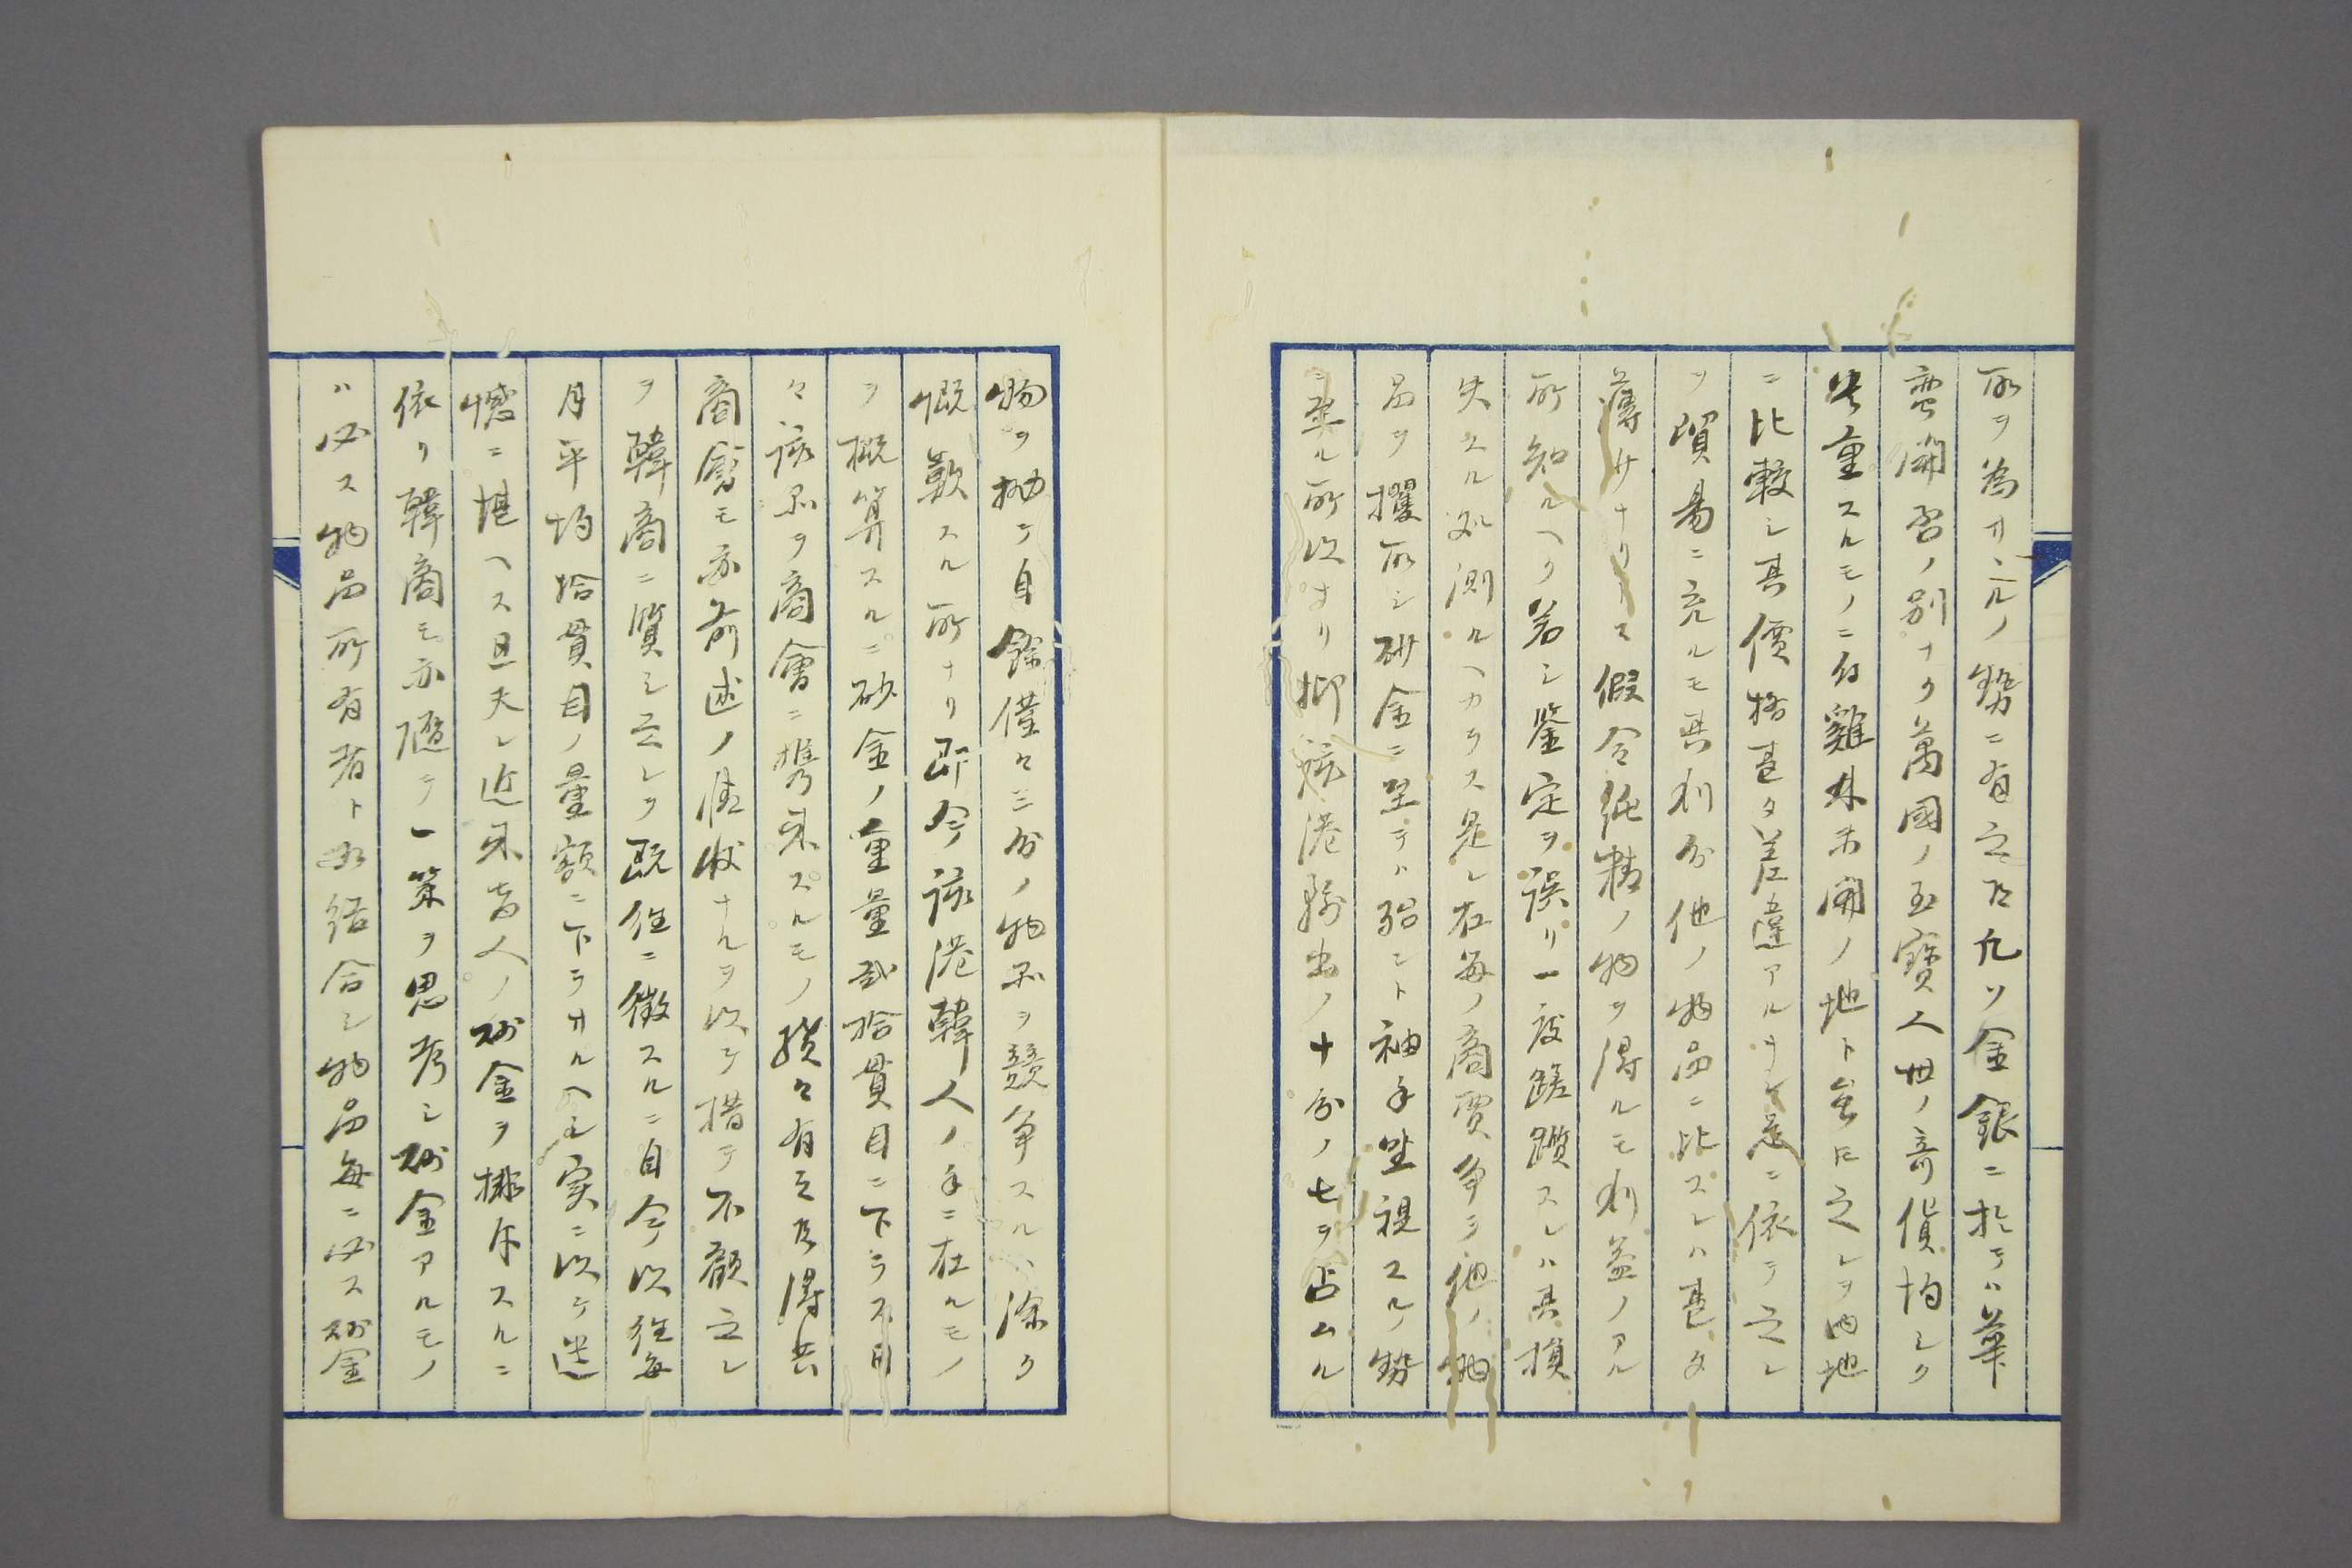 所ヲ為サヽルノ勢ニ有之候凡ソ金銀ニ於テハ華
蛮開否ノ別ナク萬國ノ至寶人世ノ奇貨均シク
貴重スルモノニ付雞林未開ノ地ト雖𪜈之レヲ内地
ニ比較シ其價格甚タ差違アルナシ是ニ依テ之レ
ヲ貿易ニ充ルモ其利分他ノ物品ニ比スレハ甚タ
薄サナリトス假令純精ノ物ヲ得ルモ利益ノアル
所知ルヘク若シ鑒定ヲ誤リ一度蹉躓スレハ其損
失スル処測ルヘカラス是レ在毎ノ商賈争テ他ノ物
品ヲ攫取シ砂金ニ至テハ殆ント袖手坐視スルノ勢
ニ至ル所以ナリ抑該港輸出ノ十分ノ七ヲ占ムル
物ヲ抛テ自餘僅々三分ノ物品ヲ競争スルハ深ク
慨歎スル所ナリ即今該港韓人ノ手ニ在ルモノ
ヲ概算スルニ砂金ノ重量貳拾貫目ニ下ラス月
々該品ヲ商會ニ携来スルモノ續々有之候得共
商會モ亦前述ノ情状ナルヲ以テ措テ不顧之レ
ヲ韓商ニ質シ之レヲ既往ニ徴スルニ自今以往毎
月平均拾貫目ノ量額ニ下ラサルヘシ実ニ以テ遺
憾ニ堪ヘス且夫レ近来商人ノ砂金ヲ擯斥スルニ
依リ韓商モ亦隨テ一策ヲ思考シ砂金アルモノ
ハ必ス物品所有者ト相結合シ物品毎ニ必ス砂金